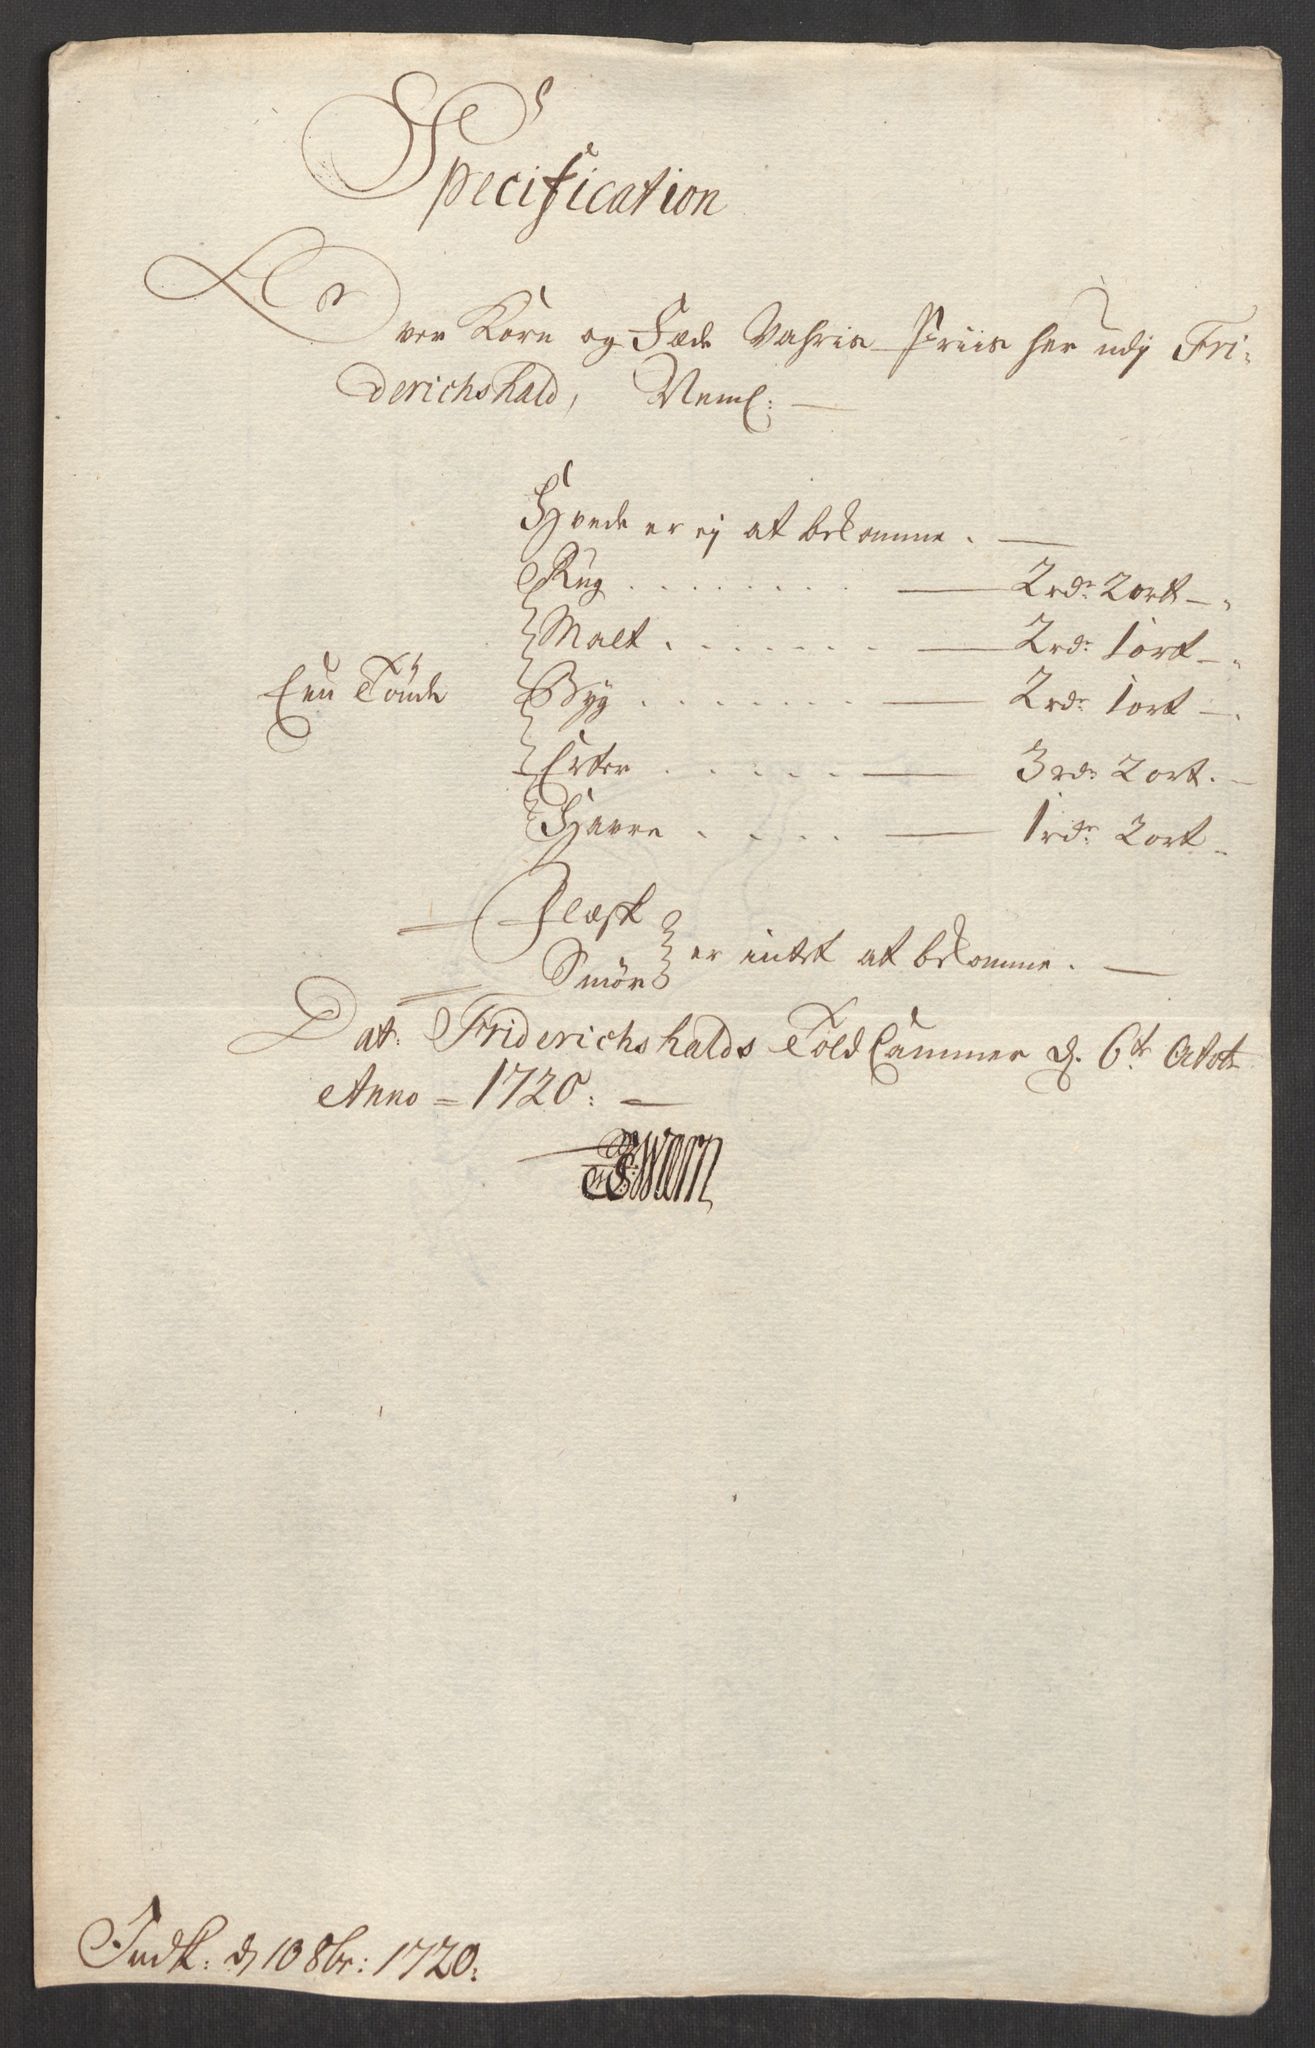 Specification
Over Korn og Fæde Vahris Priis her udj Fri-
derichshald, Neml:
Hvede er ej at bekomme.
Rug . . . . . . . . 2 rdr 2 ort
Malt . . . . . . . 2 rdr 1 ort
Een Tönde Byg . . . . . . . 2 rdr 1 ort
Erter . . . . . 3 rdr 2 ort
Havre . . . . 1 rdr 2 ort
Flæsk
Smör er intet at bekomme.
Dat: Friderichshalds Told Cammer d. 6te Octobr
Anno = 1720:
Indk: d 10 8br: 1720: